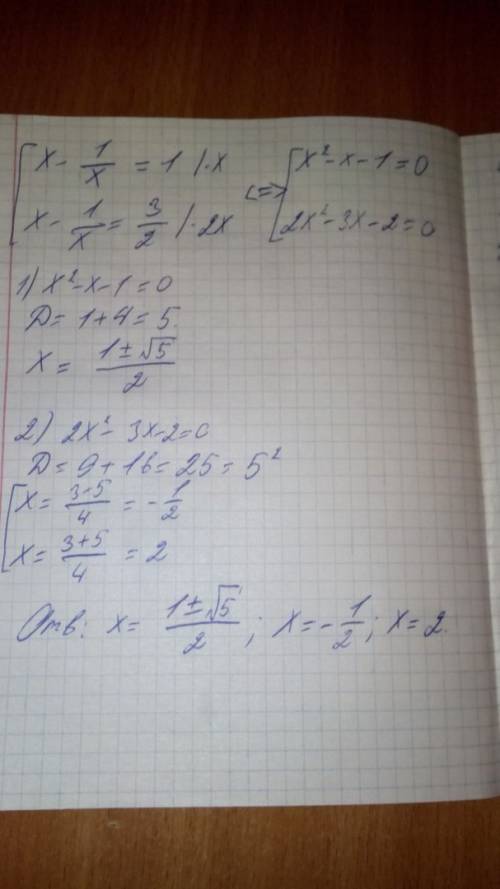 [ x - 1/x = 1 | · x
x - 1/x = 3/2 | · 2x
<=> [ x² - x - 1 = 0
2x² - 3x - 2 = 0
1) x² - x - 1 = 0
D = 1 + 4 = 5
x = (1 ± √5)/2
2) 2x² - 3x - 2 = 0
D = 9 + 16 = 25 = 5²
[ x = (3 - 5)/4 = - 1/2
x = (3 + 5)/4 = 2
Отв: x = (1 ± √5)/2 ; x = - 1/2 ; x = 2.